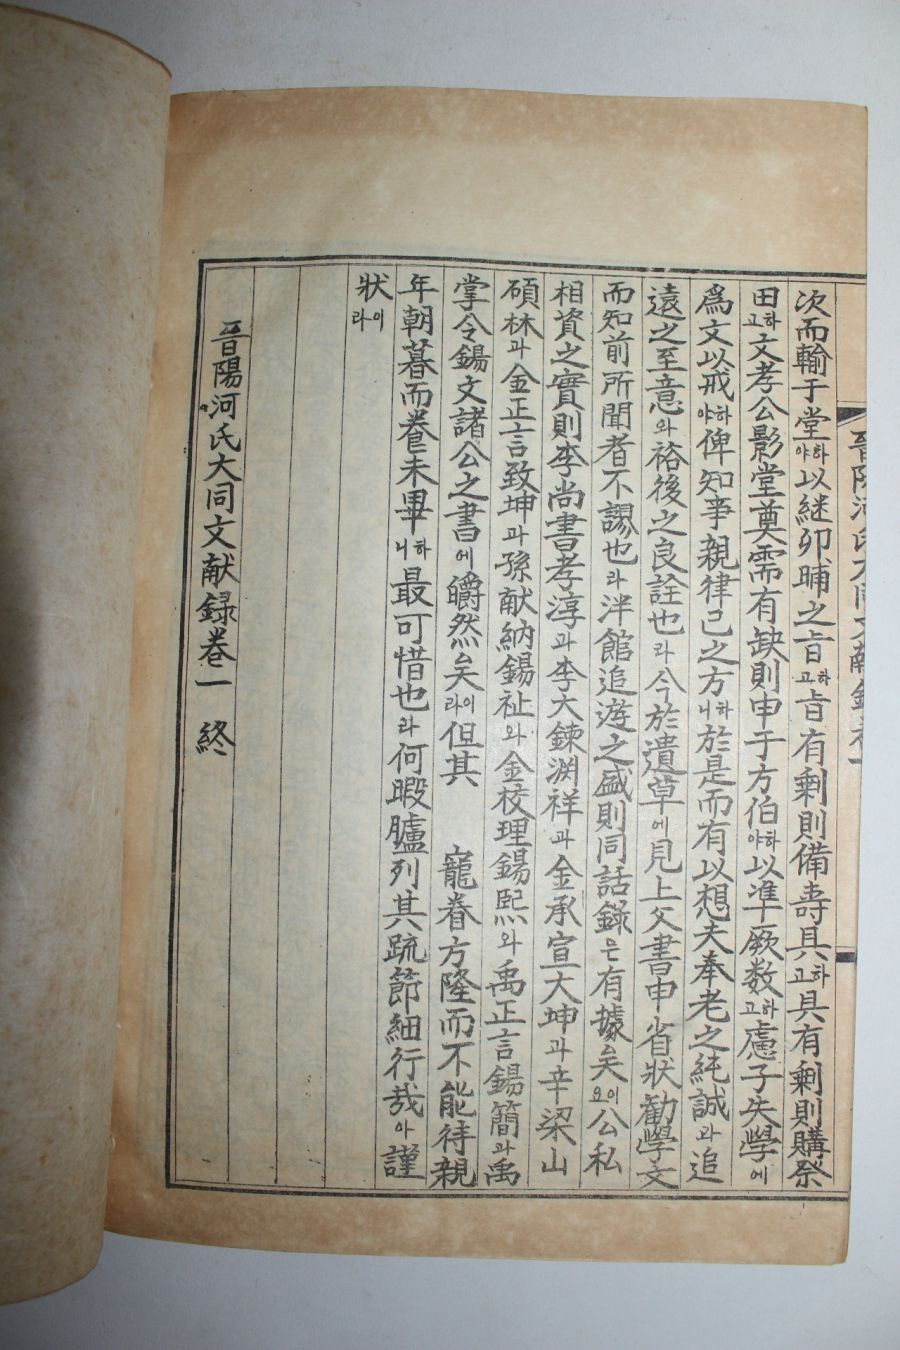 晋陽河氏大同文献録卷一
次而輸于堂하야以継卯晡之旨하고旨有剩則備壽具하고具有剩則購祭
田하고文孝公影堂奠需有缺則申于方伯하야以準厥数하고慮子失學에
爲文以戒하야俾知事親律己之方하니於是而有以想夫奉老之純誠과追
遠之至意와裕後之良詮也라今於遺草에見上父書申省狀勸學文
而知前所聞者不謬也라泮館追遊之盛則同話錄은有據矣요이公私
相資之實則李尚書孝淳과李大諫淵祥과金承宣大坤과辛梁山
碩林과金正言致坤과孫献納錫祉와金校理錫熙와禹正言錫簡과禹
掌令錫文諸公之書에皭然矣라이但其 寵眷方隆而不能待親
年朝暮而養未畢하니最可惜也라何暇臚列其疏節細行哉아謹
狀이라
晋陽河氏大同文献録卷一 終